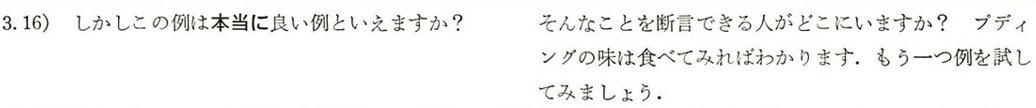 3.16)　しかしこの例は本当に良い例といえますか？
そんなことを断言できる人がどこにいますか？　プディ
ングの味は食べてみればわかります．もう一つ例を試し
てみましょう．